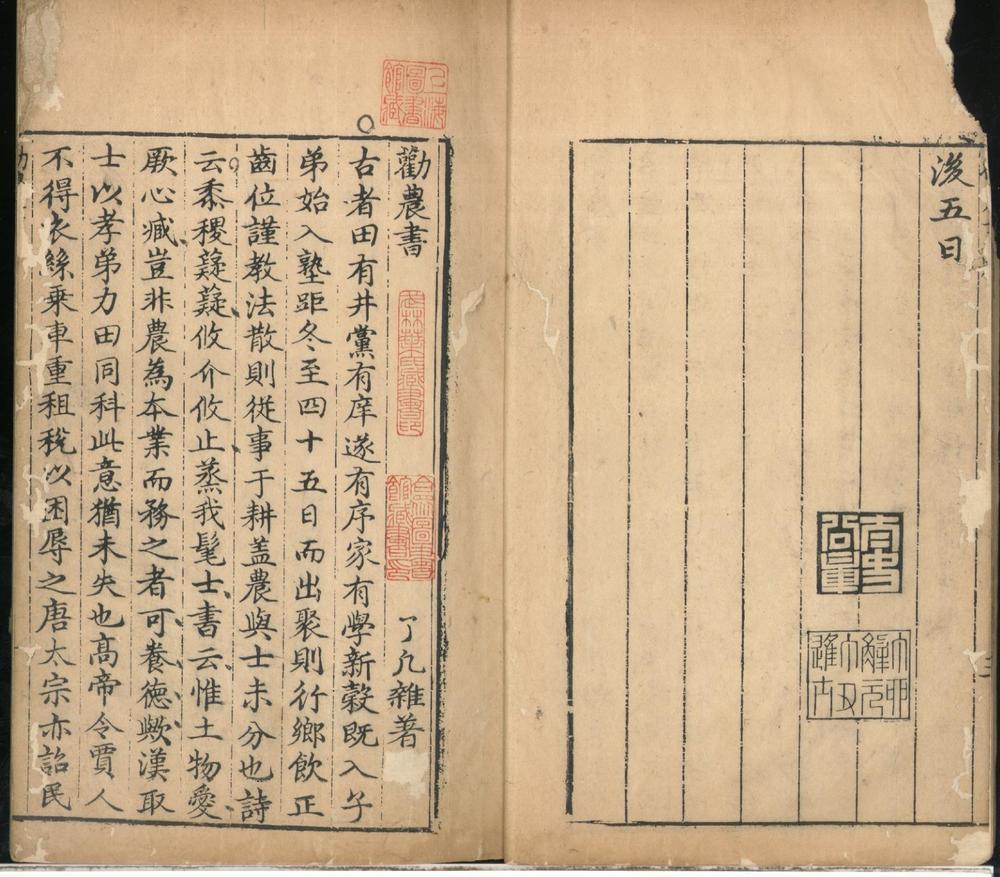 後五日
上海圖書館藏
勸農書
武林葉氏藏書印
合眾圖書館藏書印
了凡雜著
古者田有井黨有庠遂有序家有學新穀既入子
弟始入塾距冬至四十五日而出聚則行鄉飲正
齒位謹教法散則從事于耕盖農與士未分也詩
云黍稷薿薿攸介攸止蒸我髦士書云惟土物愛
厥心臧豈非農為本業而務之者可養德歟漢取
士以孝弟力田同科此意猶未失也高帝令賈人
不得衣絲乗車重租稅以困辱之唐太宗亦詔民